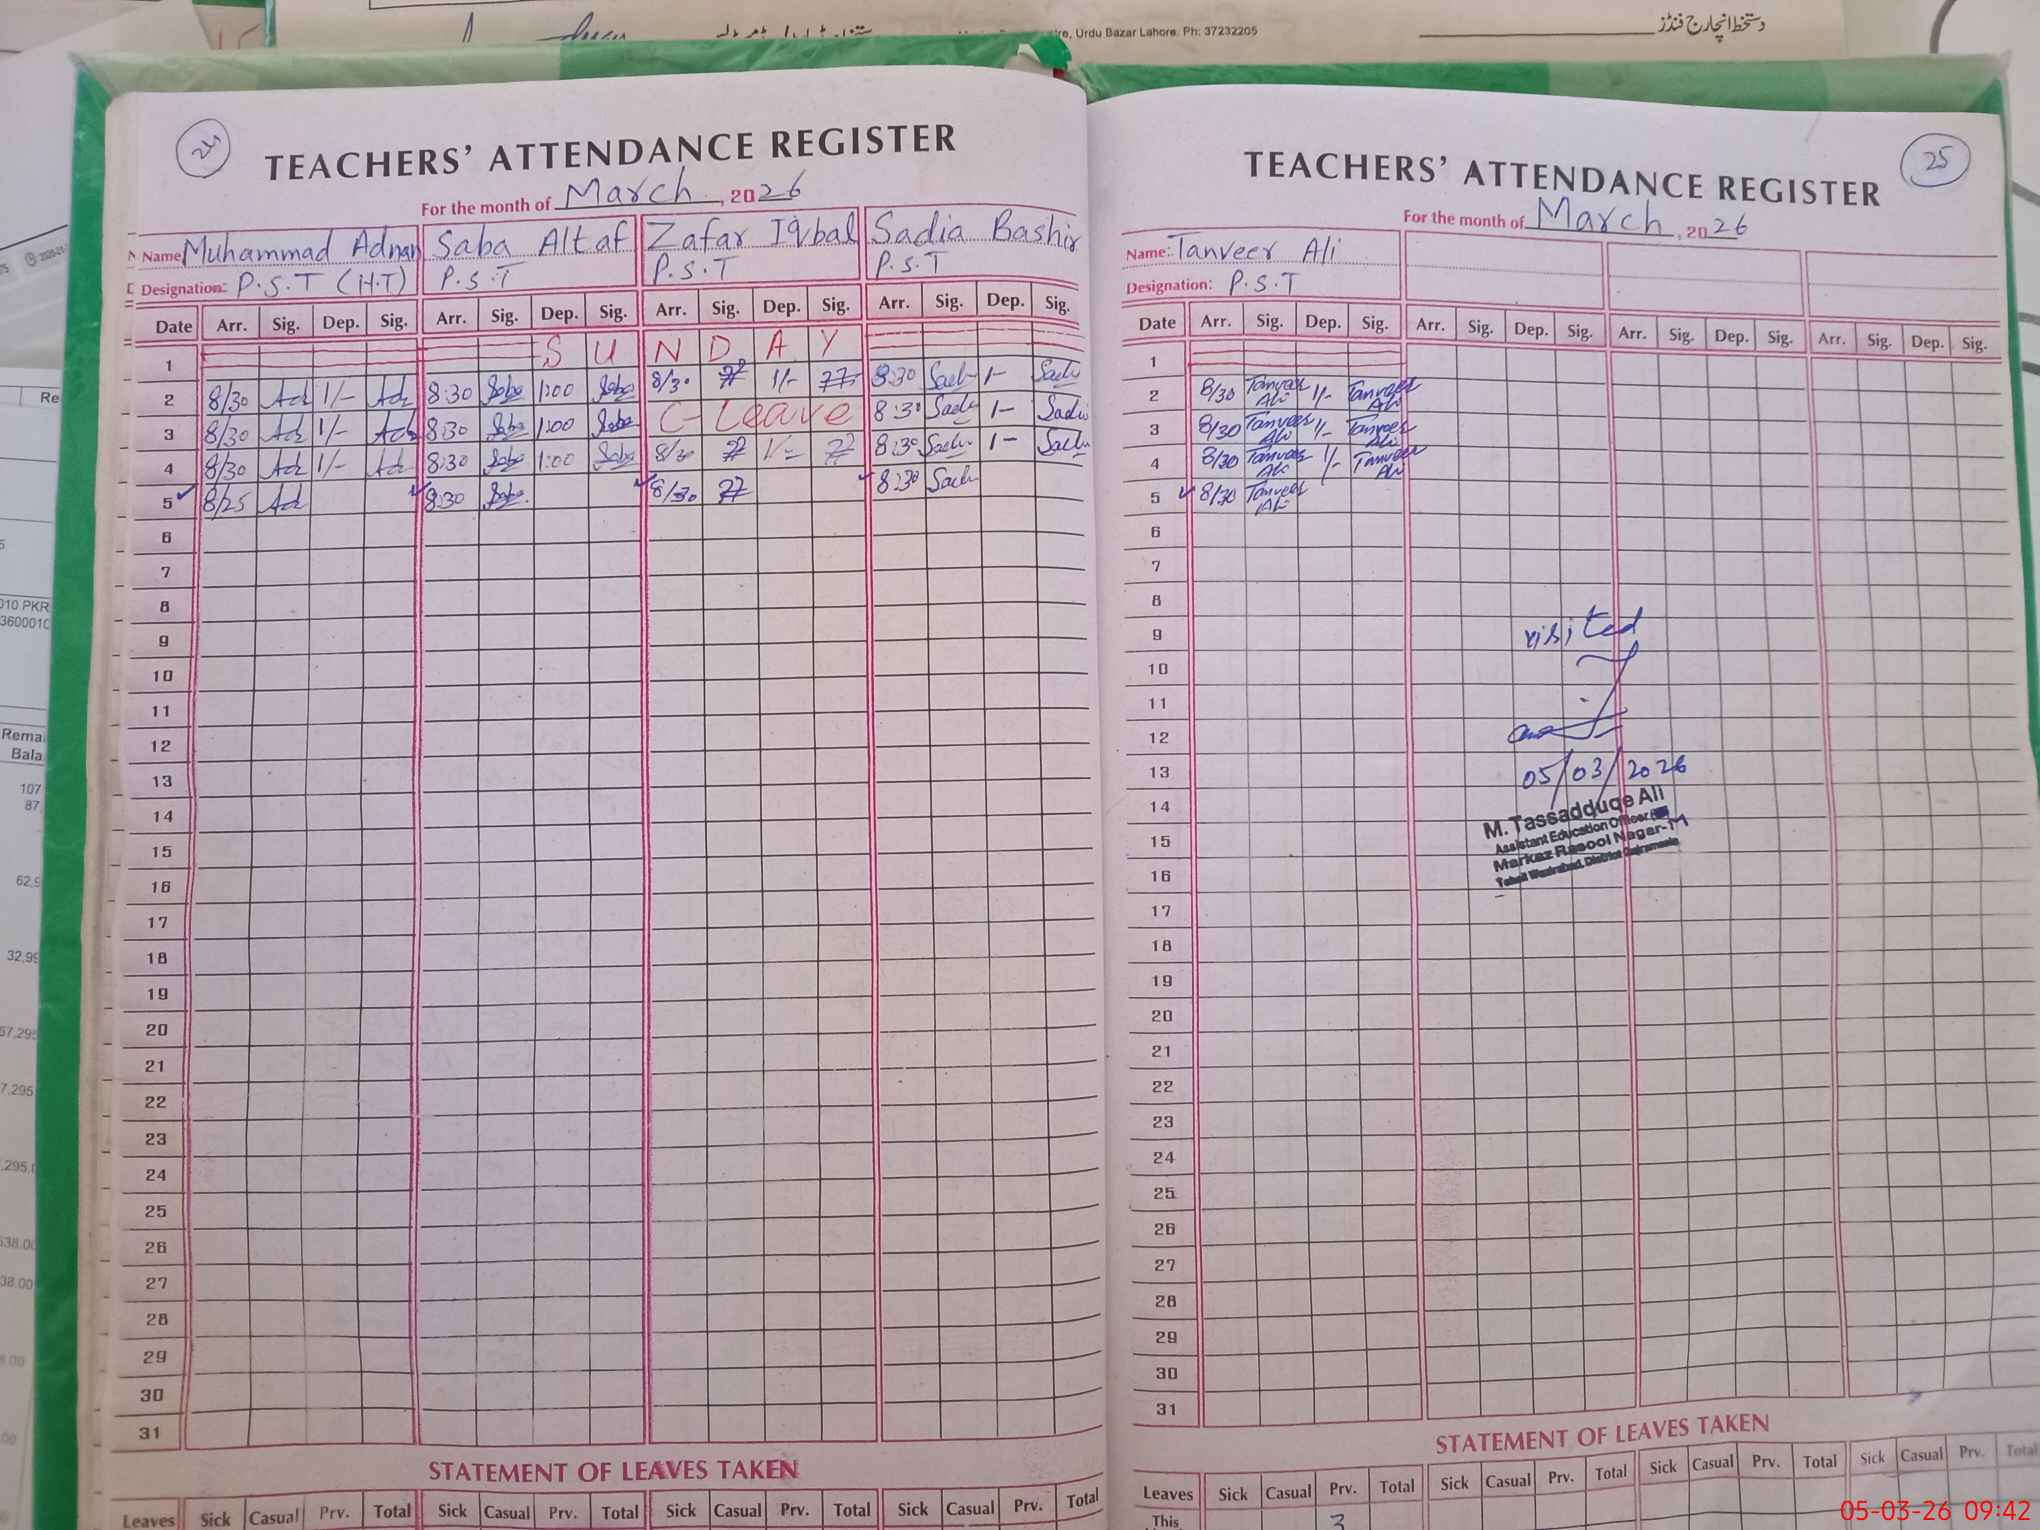 دستخط انچارج فنڈز
Urdu Bazar Lahore. Ph: 37232205
24
TEACHERS' ATTENDANCE REGISTER
For the month of March, 2026
Name: Muhammad Adnan Saba Altaf Zafar Iqbal Sadia Bashir
Designation: P.S.T (H.T) P.S.T P.S.T P.S.T
Date Arr. Sig. Dep. Sig. Arr. Sig. Dep. Sig. Arr. Sig. Dep. Sig. Arr. Sig. Dep. Sig.
1 SUNDAY
2 8/30 Ad 1/- Ad 8:30 Saba 1:00 Saba 8/30 1/- 8:30 Sadi 1- Sadi
3 8/30 Ad 1/- Ad 8:30 Saba 1:00 Saba C-Leave 8:30 Sadi 1- Sadi
4 8/30 Ad 1/- Ad 8:30 Saba 1:00 Saba 8/30 1/- 8:30 Sadi 1- Sadi
5 8/25 Ad 8:30 Saba 8/30 8:30 Sadi
6
7
8
9
10
11
12
13
14
15
16
17
18
19
20
21
22
23
24
25
26
27
28
29
30
31
STATEMENT OF LEAVES TAKEN
Leaves Sick Casual Prv. Total Sick Casual Prv. Total Sick Casual Prv. Total Sick Casual Prv. Total
25
TEACHERS' ATTENDANCE REGISTER
For the month of March, 2026
Name: Tanveer Ali
Designation: P.S.T
Date Arr. Sig. Dep. Sig. Arr. Sig. Dep. Sig. Arr. Sig. Dep. Sig. Arr. Sig. Dep. Sig.
1
2 8/30 Tanveer Ali 1/- Tanveer Ali
3 8/30 Tanveer Ali 1/- Tanveer Ali
4 8/30 Tanveer Ali 1/- Tanveer Ali
5 8/30 Tanveer Ali
6
7
8
9 visited
10
11
12
13 05/03/2026
14 M. Tassadduqe Ali
15 Assistant Education Officer
Markaz Rasool Nagar-M
16 Tehsil Wazirabad, District Gujranwala
17
18
19
20
21
22
23
24
25
26
27
28
29
30
31
STATEMENT OF LEAVES TAKEN
Leaves Sick Casual Prv. Total Sick Casual Prv. Total Sick Casual Prv. Total Sick Casual Prv. Total
This 3
05-03-26 09:42